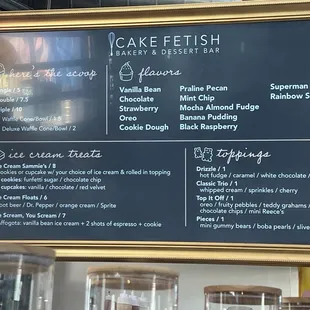 CAKE FETISH
BAKERY & DESSERT BAR
here's the scoop
ngle / 5
ouble / 7.5
riple / 10
Waffle Cone/Bowl / 1.5
Deluxe Waffle Cone/Bowl / 2
flavors
Vanilla Bean
Chocolate
Strawberry
Oreo
Cookie Dough
Praline Pecan
Mint Chip
Mocha Almond Fudge
Banana Pudding
Black Raspberry
Superman
Rainbow S
ice cream treats
e Cream Sammie's / 8
ookies or cupcake w/ your choice of ice cream & rolled in topping
cookies: funfetti sugar / chocolate chip
cupcakes: vanilla / chocolate / red velvet
e Cream Floats / 6
oot beer / Dr. Pepper / orange cream / Sprite
e Scream, You Scream / 7
ffogota: vanilla bean ice cream + 2 shots of espresso + cookie
toppings
Drizzle / 1
hot fudge / caramel / white chocolate /
Classic Trio / 1
whipped cream / sprinkles / cherry
Top It Off / 1
oreo / fruity pebbles / teddy grahams /
chocolate chips / mini Reece's
Pieces / 1
mini gummy bears / boba pearls / slive